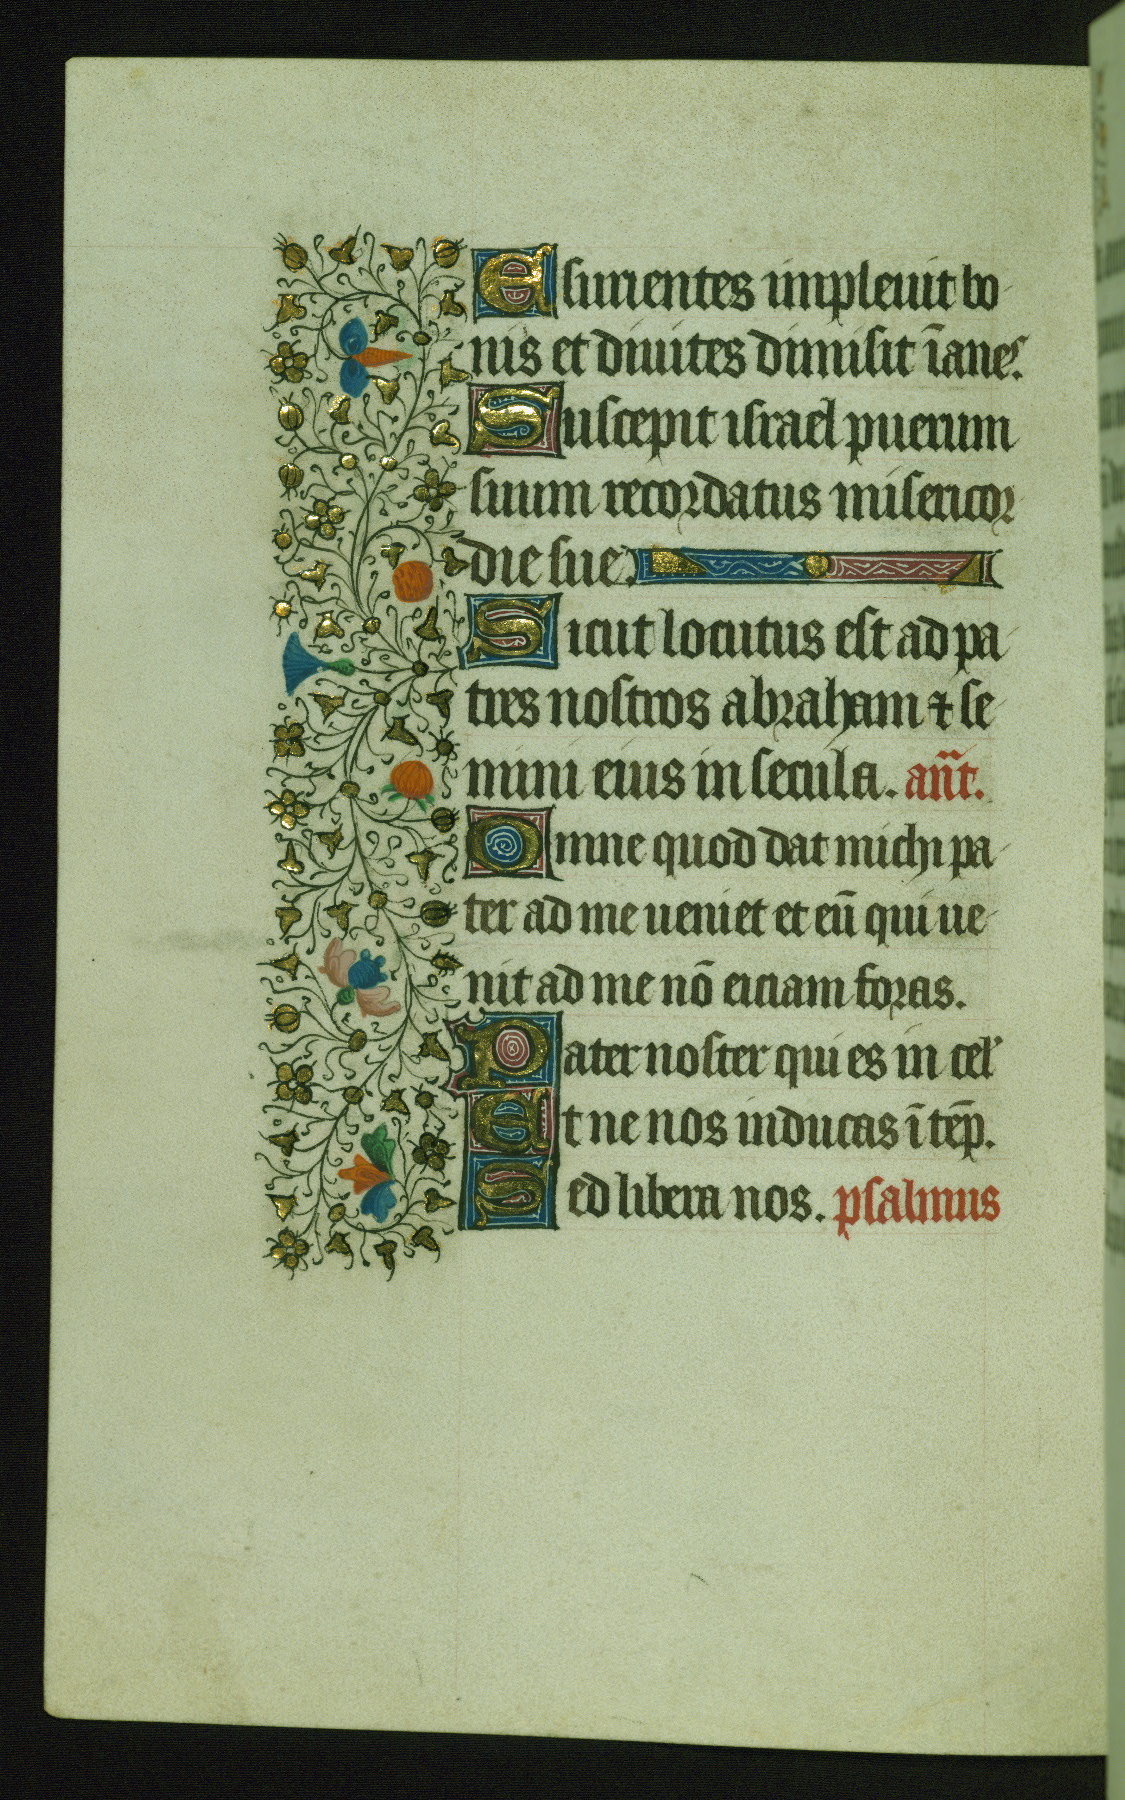 Esurientes impleuit bo
nis et diuites dimisit īanes.
Suscepit israel puerum
suum recordatus misericor
die sue.
Sicut locutus est ad pa
tres nostros abraham & se
mini eius in secula. an̄t.
Omne quod dat michi pa
ter ad me ueniet et eū qui ue
nit ad me nō eiciam foras.
Pater noster qui es in cel'
Et ne nos inducas ī tēp.
Sed libera nos. psalmus